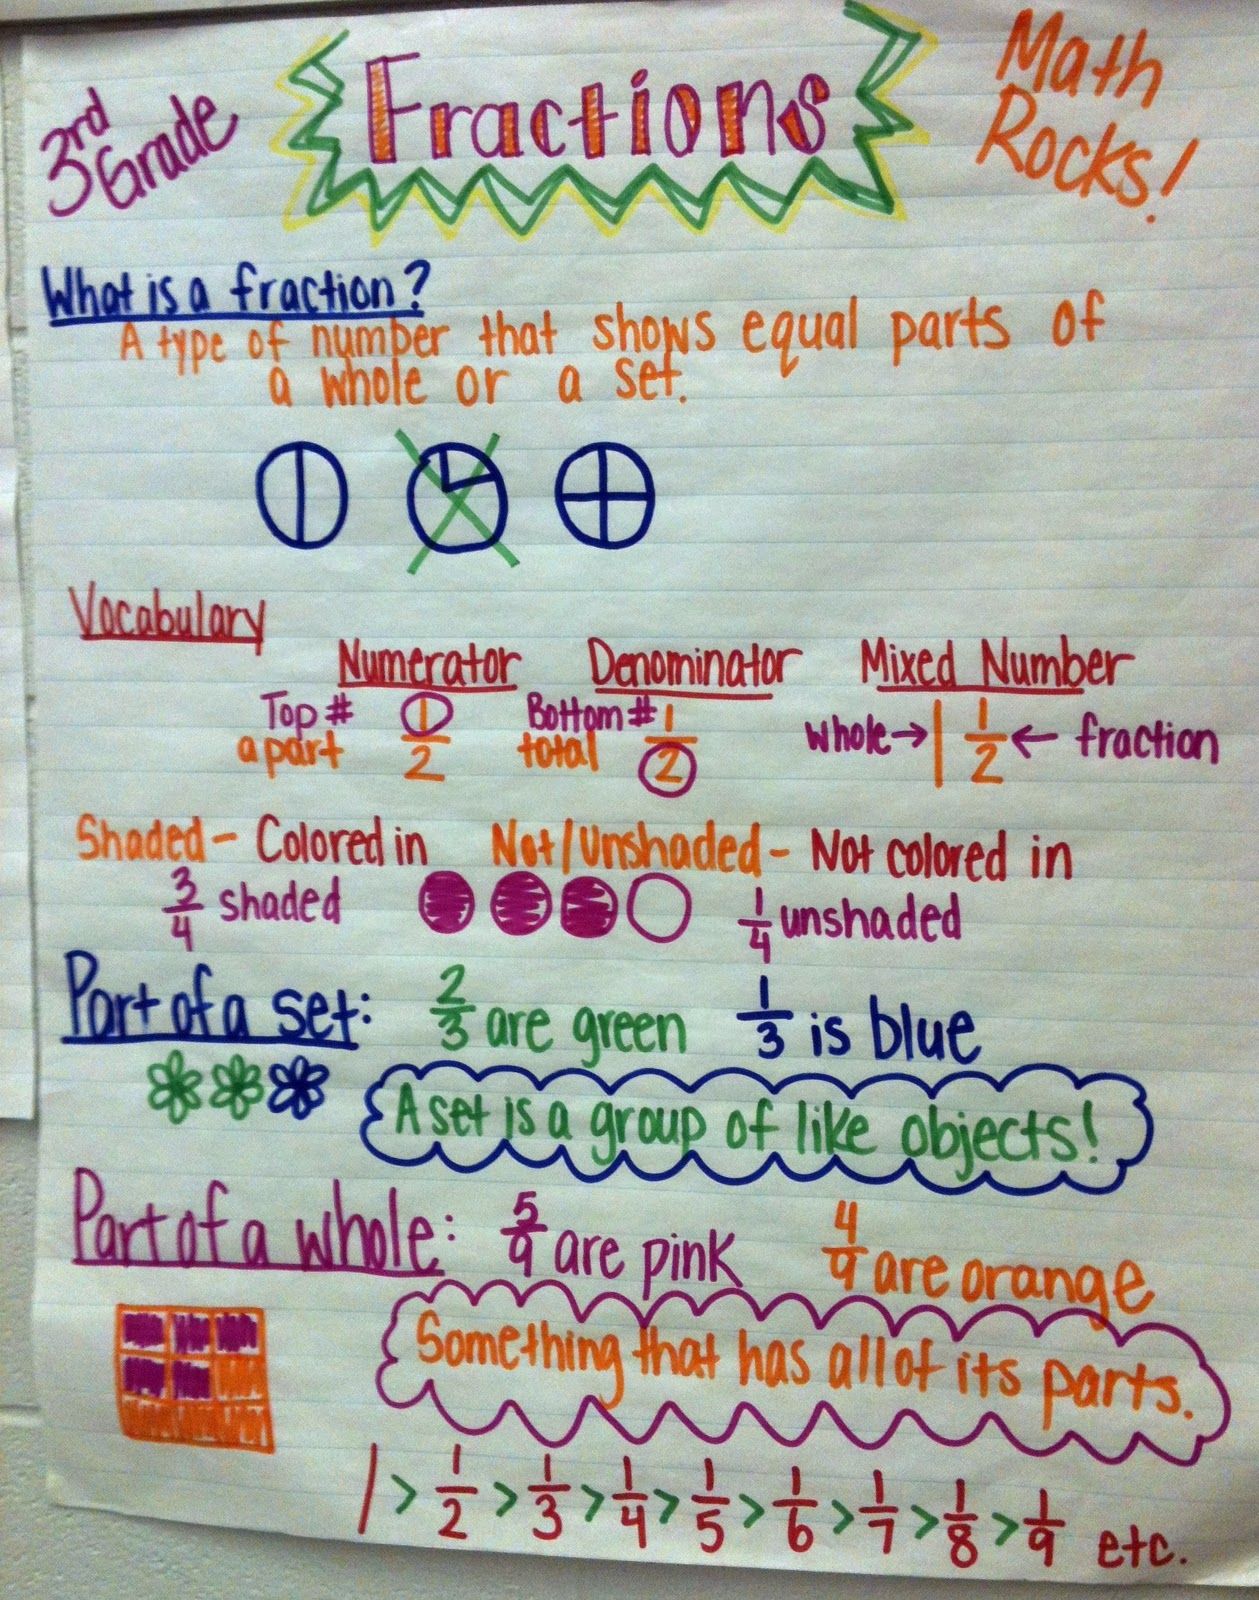 3rd Grade
Fractions
Math Rocks!
What is a fraction?
A type of number that shows equal parts of
a whole or a set.
Vocabulary
Numerator Denominator Mixed Number
Top # a part 1/2
Bottom # total 1/2
whole → 1 1/2 ← fraction
Shaded - Colored in Not/Unshaded - Not colored in
3/4 shaded 1/4 unshaded
Part of a set: 2/3 are green 1/3 is blue
A set is a group of like objects!
Part of a whole: 5/9 are pink 4/9 are orange
Something that has all of its parts.
1 > 1/2 > 1/3 > 1/4 > 1/5 > 1/6 > 1/7 > 1/8 > 1/9 etc.